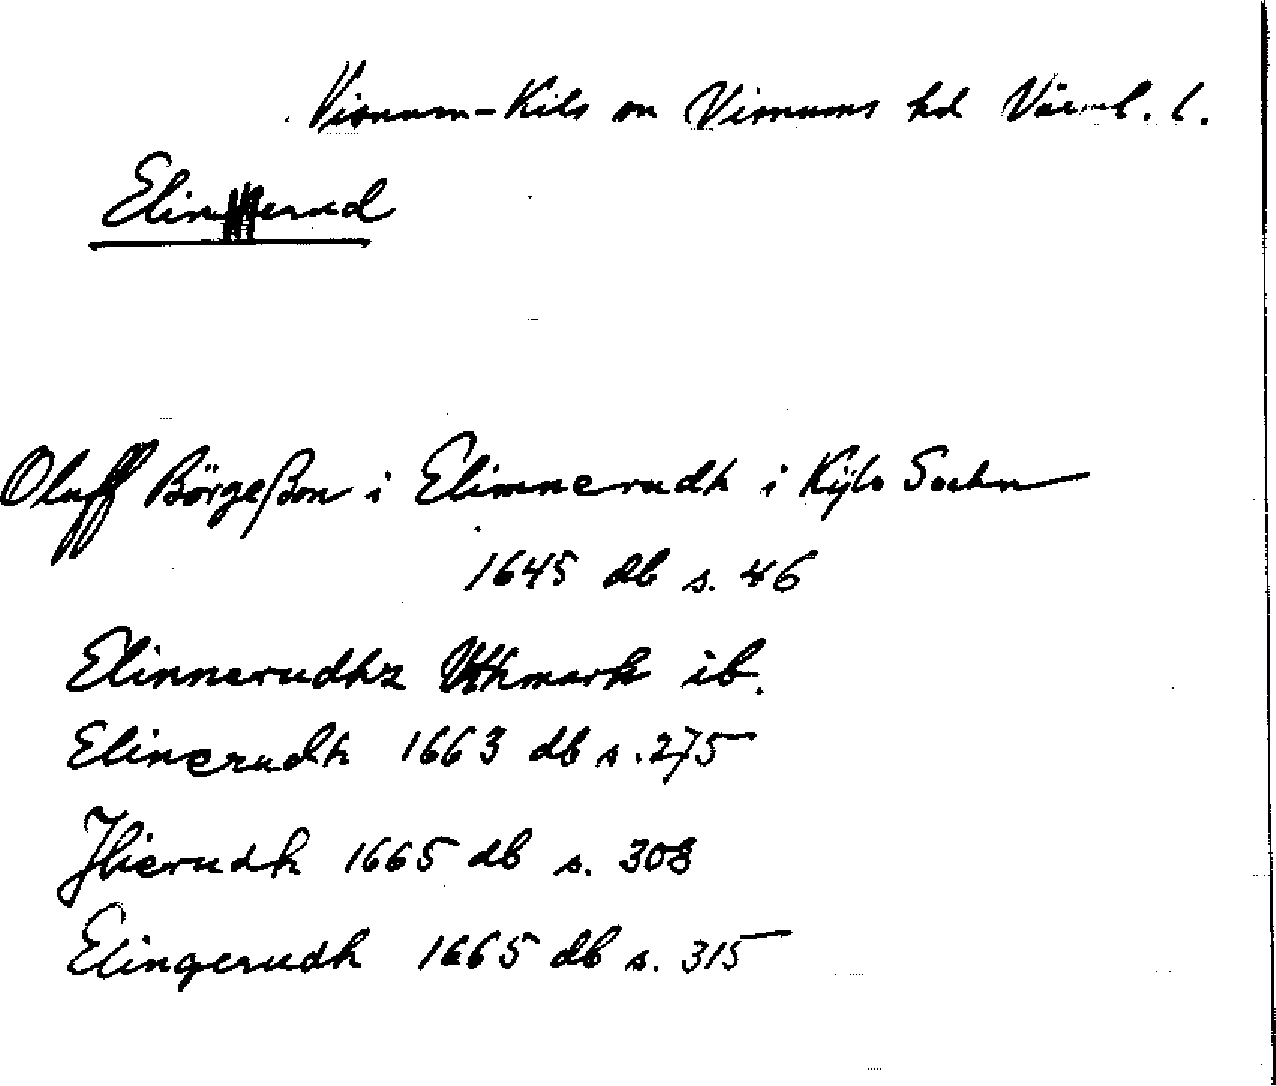 Visnum-Kils sn Visnums hd Värml. l.
Elinnerud
Oluff Börgeßon i Elinnerudh i Kÿls Sochn
1645 db s. 46
Elinnerudhz Uthmark ib.
Elinerudh 1663 db s. 275
Jlierudh 1665 db s. 308
Elingerudh 1665 db s. 315